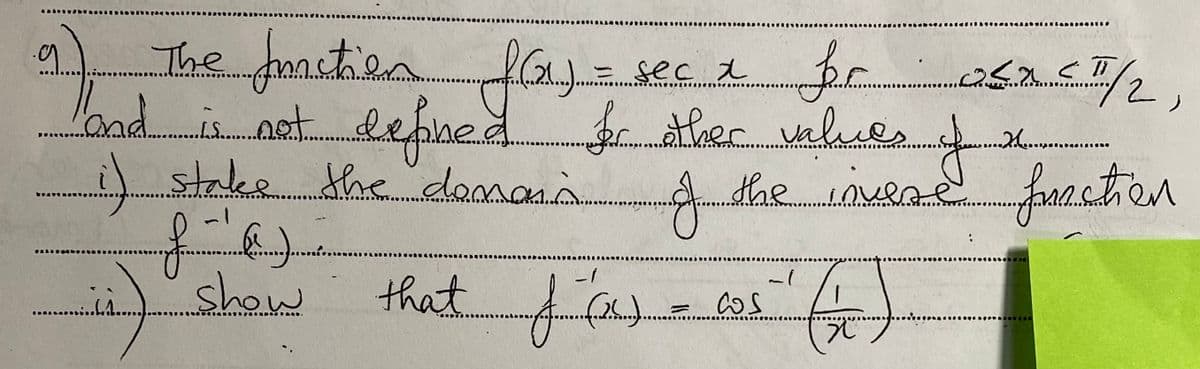 9) The function f(x) = sec x for 0<x<π/2,
and is not defined for other values of x
i) state the domain of the inverse function
f⁻¹(x).
ii) show that f⁻¹(x) = cos⁻¹(1/x)